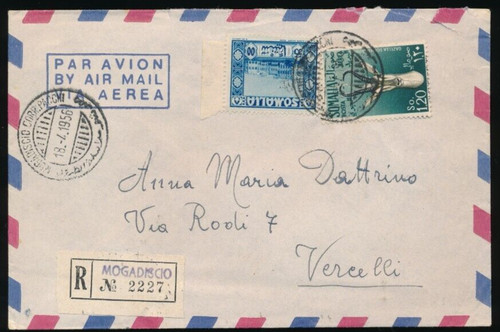 PAR AVION
BY AIR MAIL
AEREA
SOMALIA
SOMALIA
So 1.20
١٢٠
MOGADISCIO
18.-4.1956
Anna Maria Dattrino
Via Rodi 7
Vercelli
R
MOGADISCIO
№ 2227